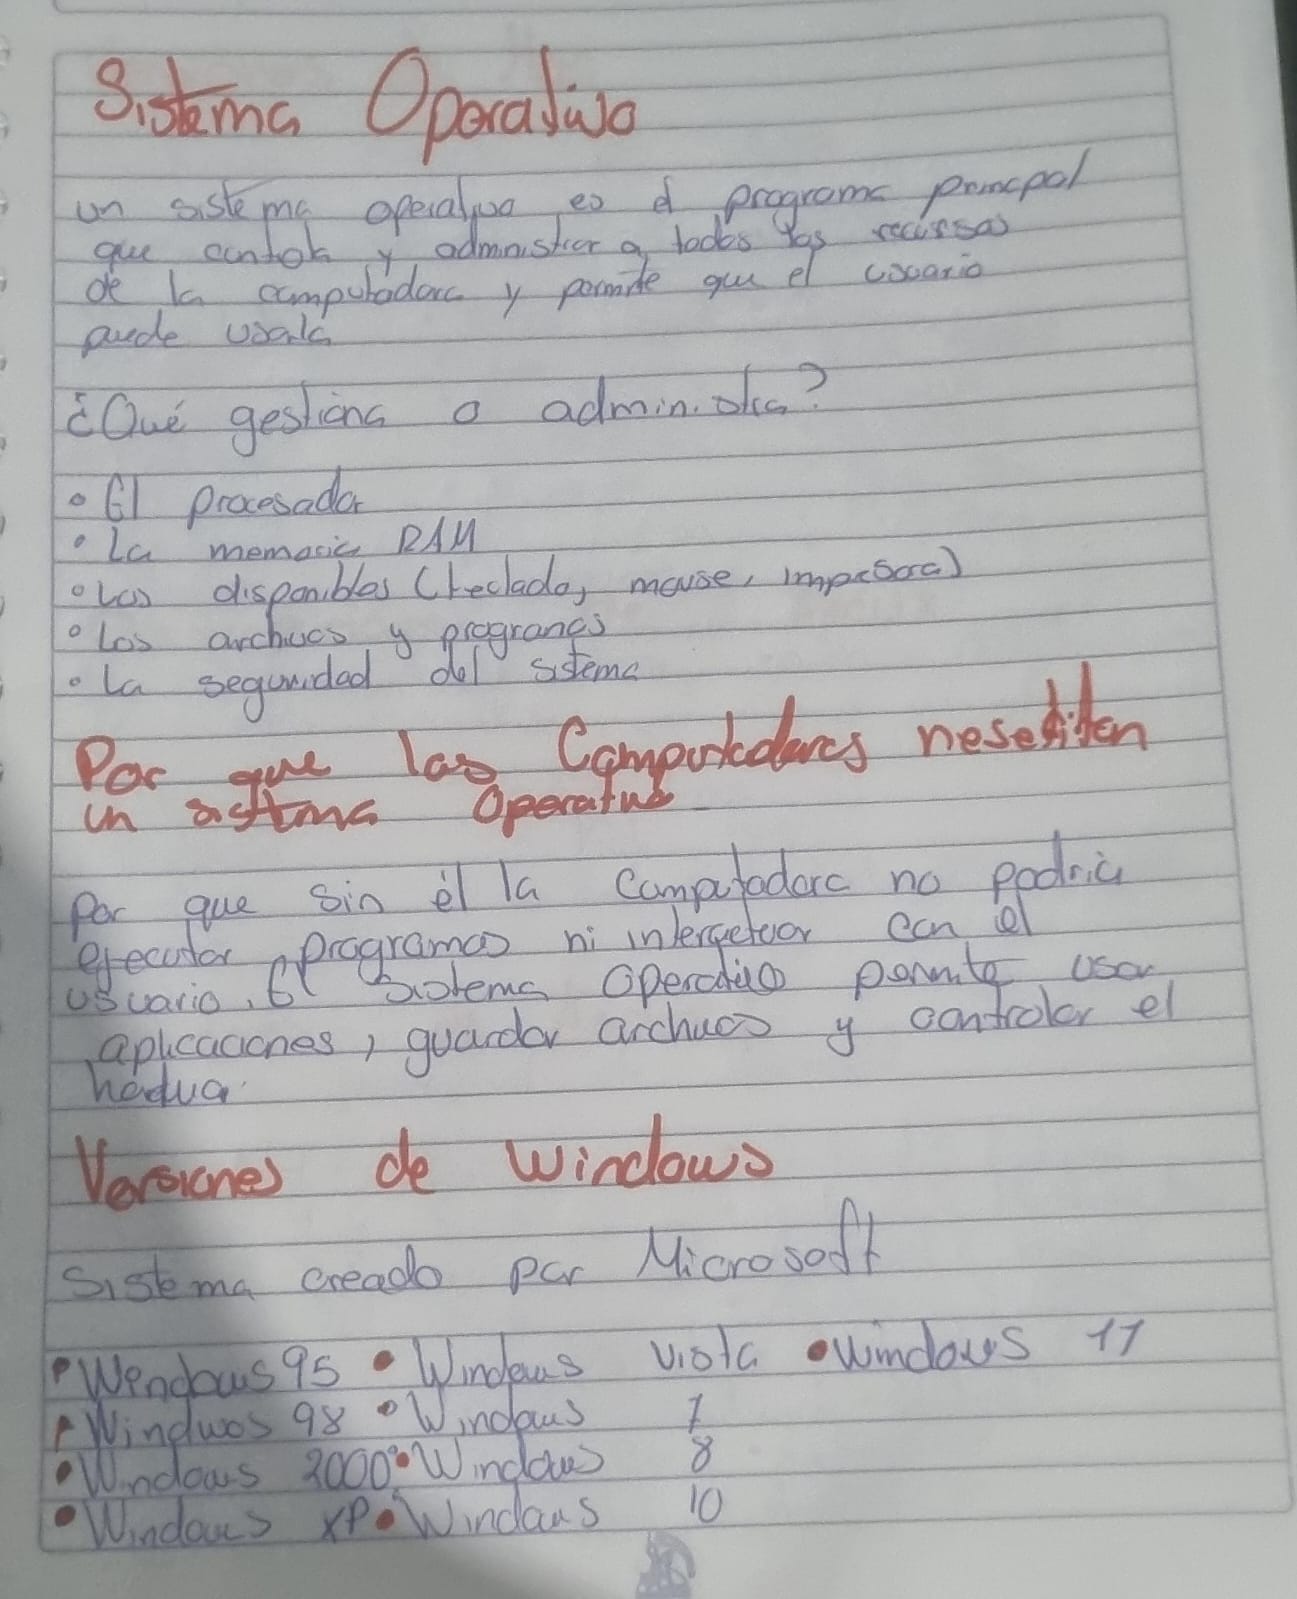 Sistema Operativo
un sistema operativo es el programa principal
que contola y administrar a todos los recursos
de la computadora y permite que el usuario
puede usarla
¿Qué gestiona o administra?
• El procesador
• La memoria RAM
• Los disponibles (teclado, mouse, impresora)
• Los archivos y programas
• La seguridad del sistema
Por que las Computadores nesesiten
un sistema Operativo
Por que sin él la Computadora no podria
ejecutar programas ni interactuar con el
usuario. El sistema Operativo permite usar
aplicaciones, guardar archivos y controlar el
Versiones de windows
Sistema creado por Microsoft
• Wendows 95 • Windows vista • Windows 11
• Windwos 98 • Windows 7
• Windows 2000 • Windows 8
• Windows XP • Windows 10